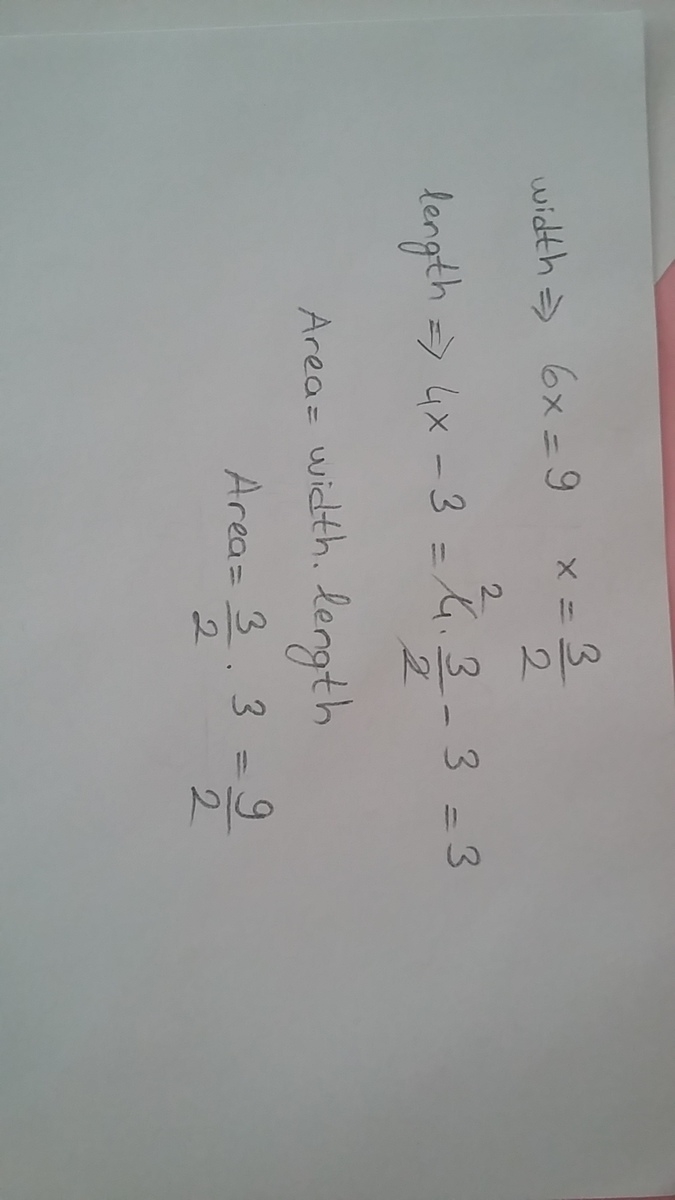 width ⇒ 6x = 9 x = 3/2
length ⇒ 4x - 3 = 4̸² . 3/2̸ - 3 = 3
Area = width . length
Area = 3/2 . 3 = 9/2